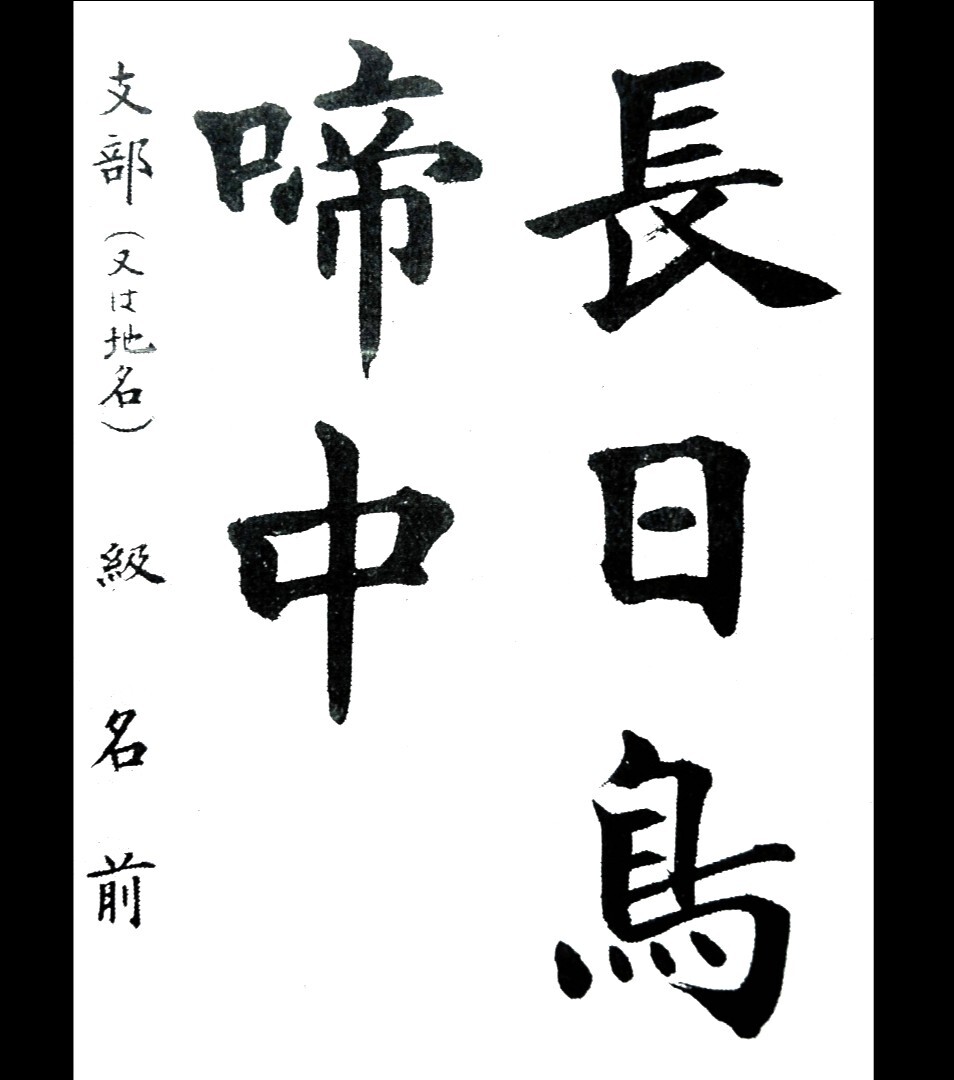 長日鳥
啼中
支部(又は地名) 級 名前